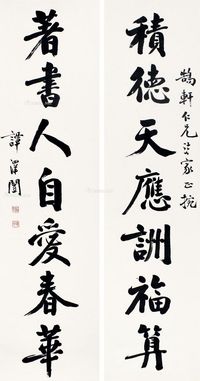 積德天應詶福算
鵠軒仁兄法家正捥
著書人自愛春華
譚澤闓